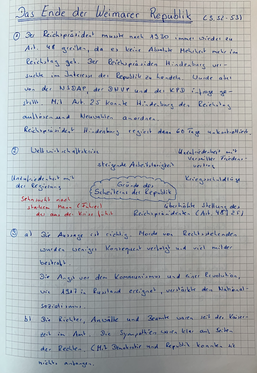 Das Ende der Weimarer Republik (S. 52-53)
① Der Reichspräsident musste nach 1930 immer wieder zu
Art. 48 greifen, da es keine Absolute Mehrheit mehr im
Reichstag gab. Der Reichspräsident Hindenburg ver-
suchte im Interesse der Republik zu handeln. Wurde aber
von der NSDAP, der DNVP und der KPD infrage ge-
stellt. Mit Art 25 konnte Hindenburg den Reichstag
auflösen und Neuwahlen anordnen.
Reichspräsident Hindenburg regiert dann 60 Tage unkontrolliert.
② Weltwirtschaftskrise
Unzufriedenheit mit
Versailler Friedens-
vertrag
steigende Arbeitslosigkeit
Unzufriedenheit mit
der Regierung
Gründe des
Scheiterns der Republik
Kriegsschuldfrage
Sehnsucht nach
starkem Mann (Führer)
der aus der Krise führt
überhöhte Stellung des
Reichspräsidenten (Art. 48, 25)
③ a) Die Aussage ist richtig. Morde von Rechtsstehenden
wurden weniger konsequent verfolgt und viel milder
bestraft.
Die Angst vor dem Kommunismus und einer Revolution,
wie 1917 in Russland ereignet, verstärkte den National-
sozialismus.
b) Die Richter, Anwälte und Beamte waren seit der Kaiser-
zeit im Amt. Die Sympathien waren klar auf Seiten
der Rechten. (Mit Demokratie und Republik konnten sie
nichts anfangen.